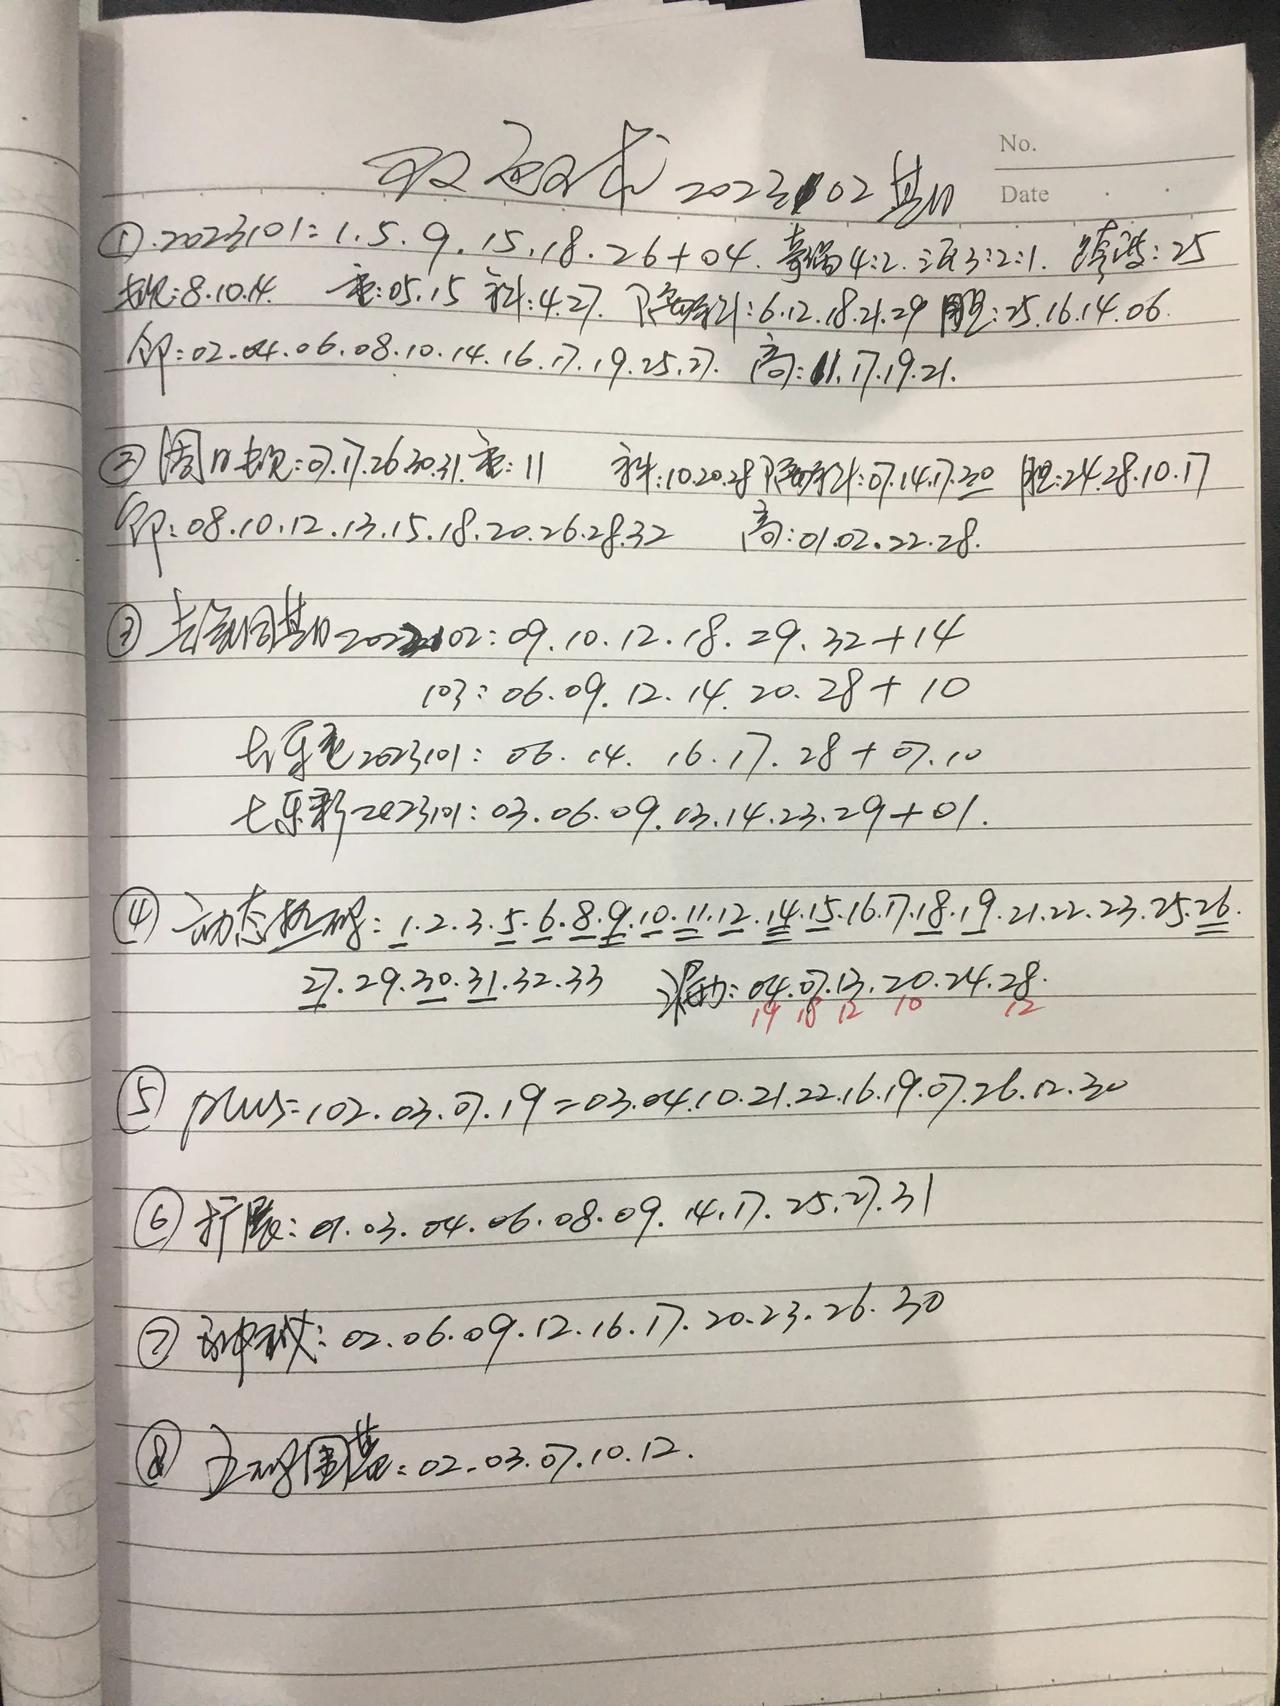 双色球 2023102期
No.
Date
① 2023101:1.5.9.15.18.26+04. 奇偶4:2. 三区3:2:1. 跨度:25
8.10.14. 重:05.15 斜:4.27. 隔期斜:6.12.18.21.29 胆:25.16.14.06
邻:02.04.06.08.10.14.16.17.19.25.27. 高:11.17.19.21.
② 周日 :07.17.26.30.31. 重:11 斜:10.20.28 隔期斜:07.14.17.30 胆:24.28.10.17
邻:08.10.12.13.15.18.20.26.28.32 高:01.02.22.28.
③ 去年同期2022102:09.10.12.18.29.32+14
103:06.09.12.14.20.28+10
2023101:06.14.16.17.28+07.10
七乐彩2023101:03.06.09.03.14.23.29+01.
④ 动态热码:1.2.3.5.6.8.9.10.11.12.14.15.16.17.18.19.21.22.23.25.26.
27.29.30.31.32.33 :04.07.13.20.24.28.
19 18 12 10 12
⑤ plus=102.03.07.19=03.04.10.21.22.16.19.07.26.12.30
⑥ 扩展:01.03.04.06.08.09.14.17.25.27.31
⑦ 种 :02.06.09.12.16.17.20.23.26.30
⑧ 五码围蓝:02.03.07.10.12.